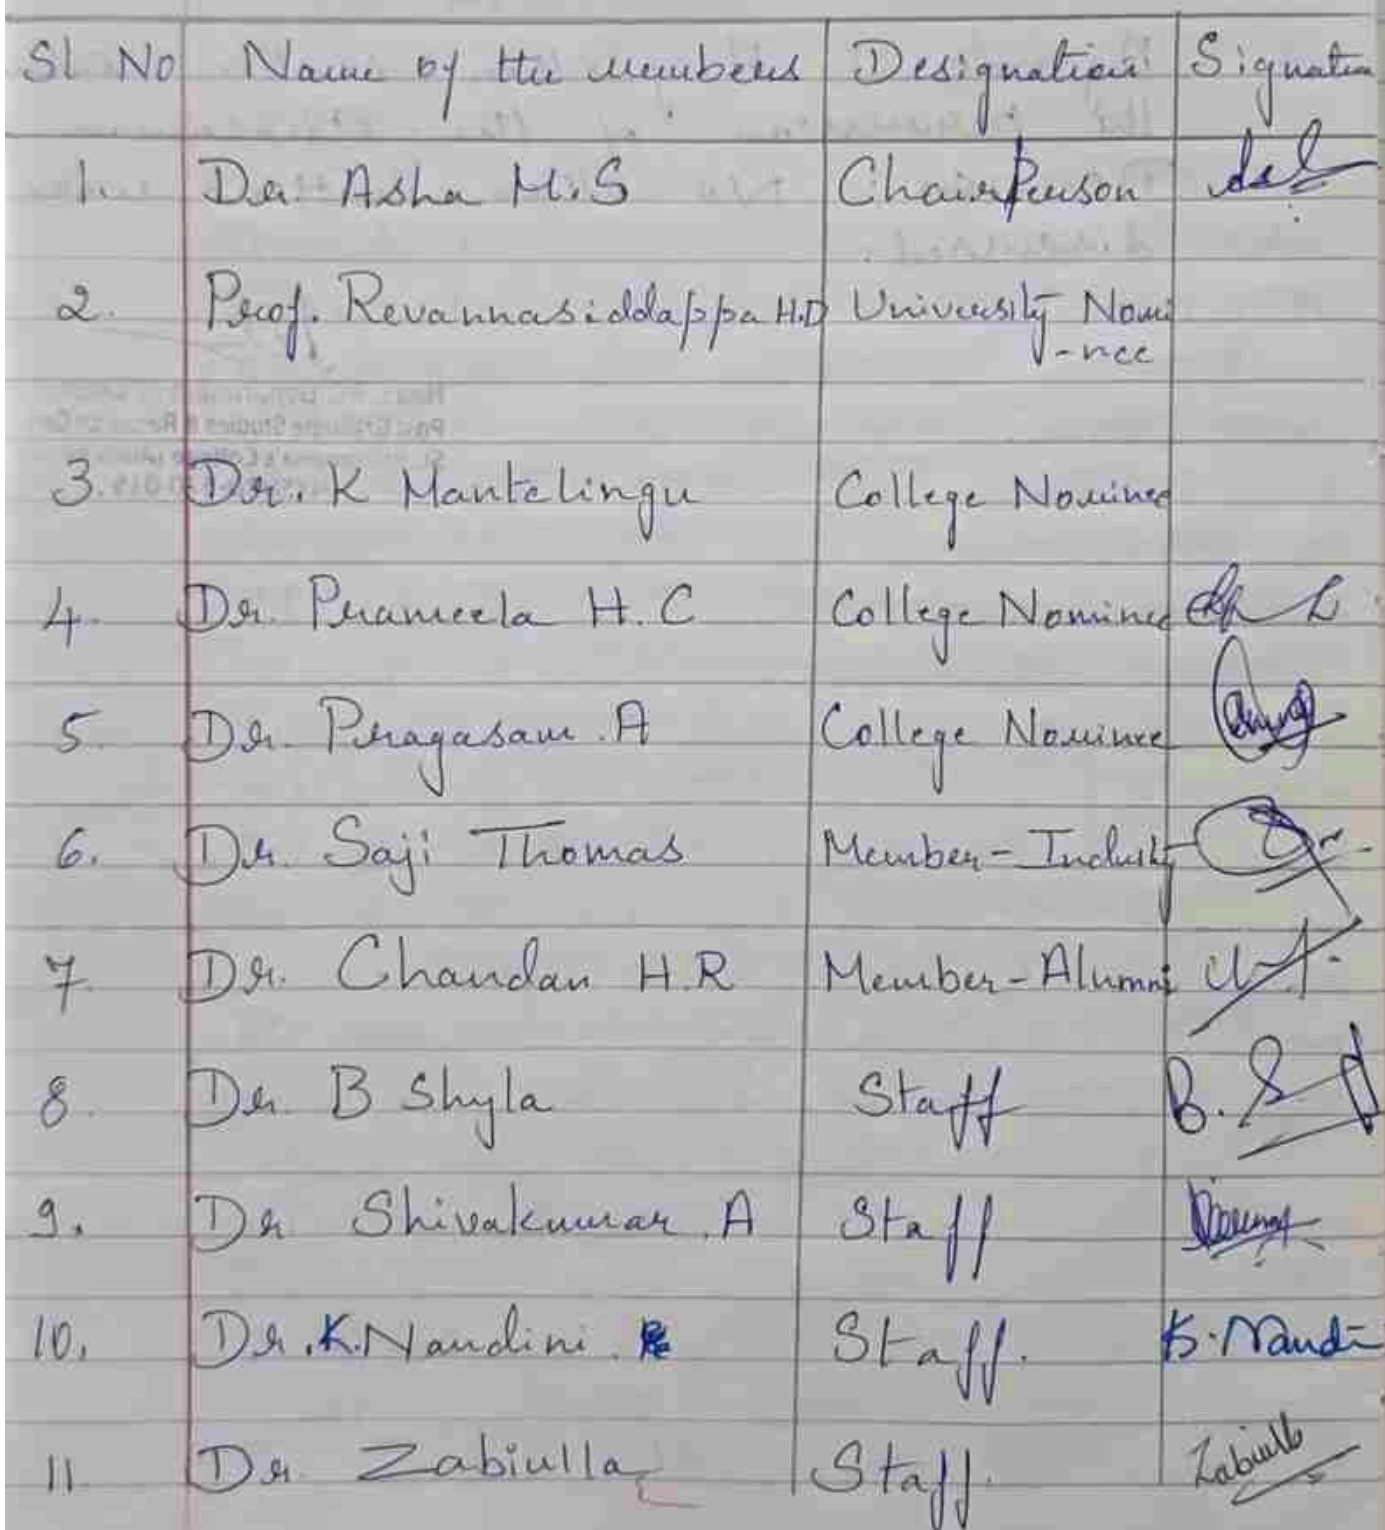 Sl No Name of the members Designation Signature
1. Dr. Asha M.S Chairperson
2. Prof. Revannasiddappa H.D University Nomi
-nee
3. Dr. K Mantelingu College Nominee
4. Dr. Prameela H.C College Nominee
5. Dr. Pragasam .A College Nominee
6. Dr. Saji Thomas Member-Industry
7. Dr. Chandan H.R Member-Alumni
8. Dr. B Shyla Staff B. S
9. Dr Shivakumar .A Staff
10. Dr. K. Nandini Staff. K. Nandi
11 Dr Zabiulla Staff. Zabiulla